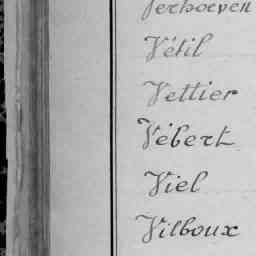 Verhoeven
Vétil
Vettier
Vébert
Viel
Vilboux